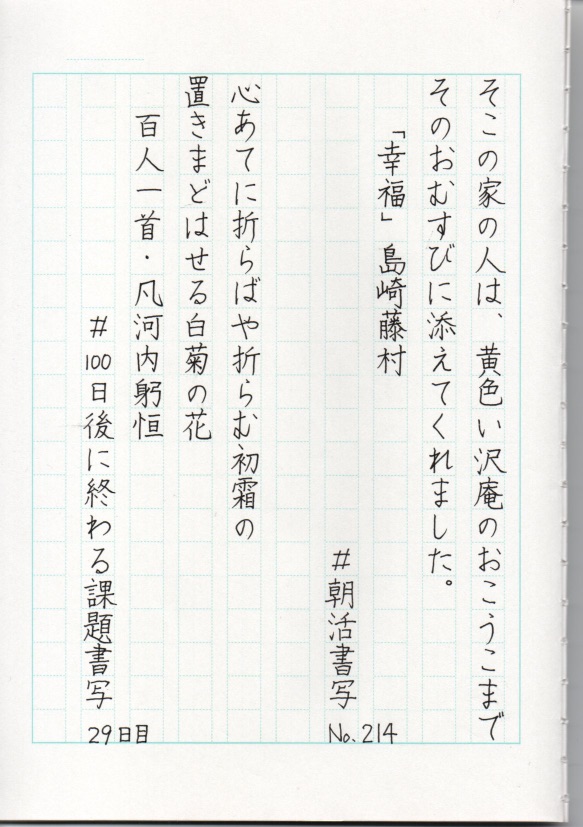 そこの家の人は、黄色い沢庵のおこうこまで
そのおむすびに添えてくれました。
「幸福」島崎藤村
#朝活書写
No.214
心あてに折らばや折らむ初霜の
置きまどはせる白菊の花
百人一首・凡河内躬恒
#100日後に終わる課題書写
29日目